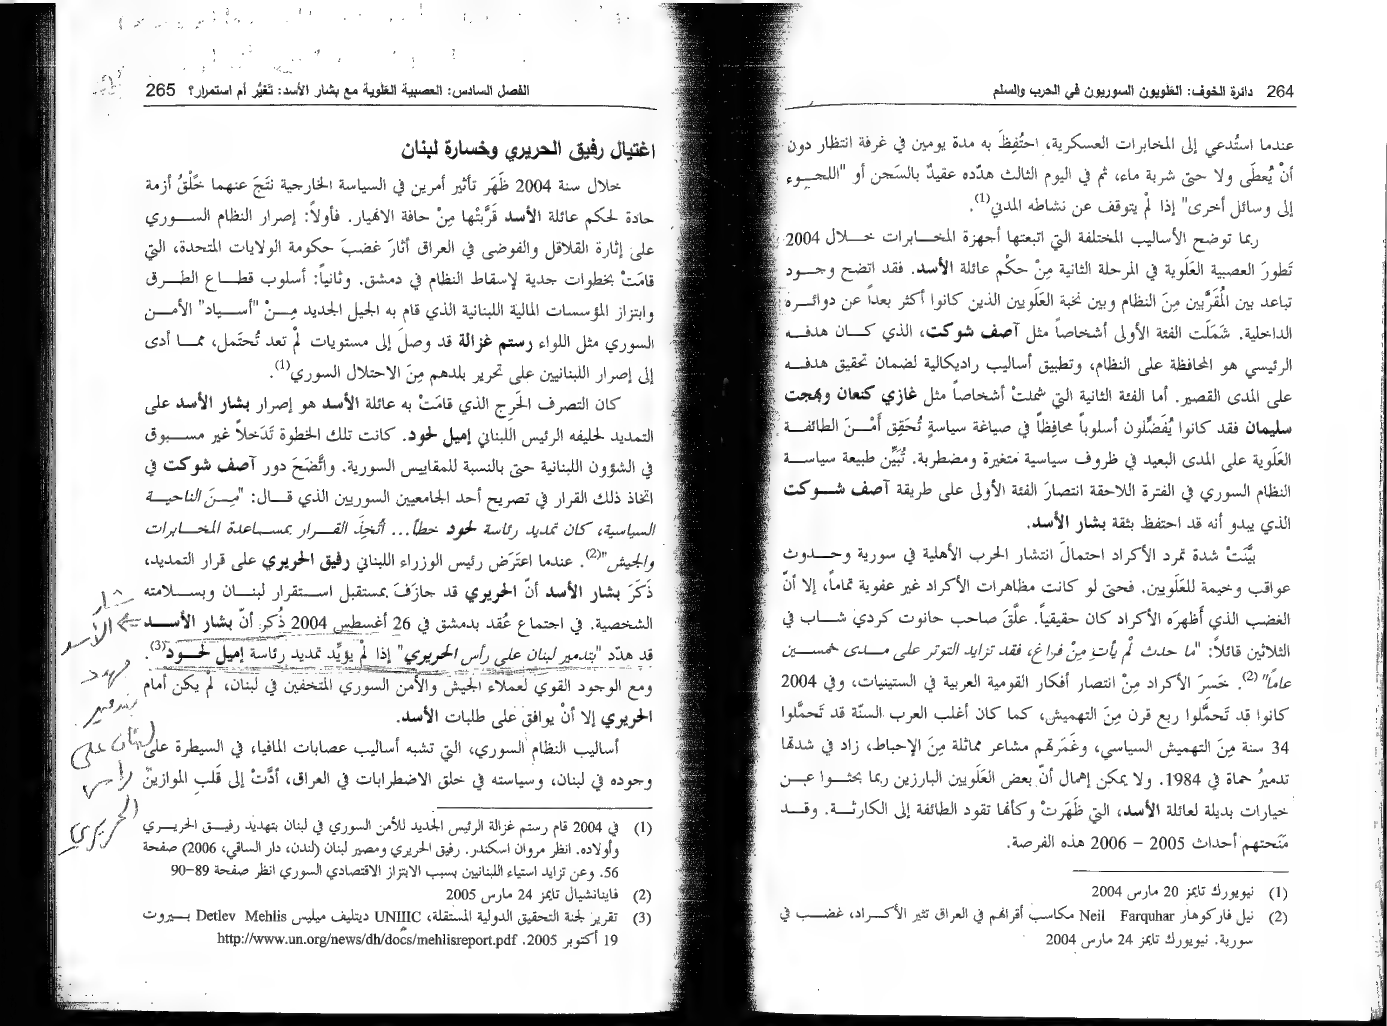 264 دائرة الخوف: العلويون السوريون في الحرب والسلم
عندما استُدعي إلى المخابرات العسكرية، احتُفِظَ به مدة يومين في غرفة انتظار دون
أنْ يُعطَى ولا حتى شربة ماء، ثم في اليوم الثالث هدّده عقيدٌ بالسَجن أو "اللجـوء
إلى وسائل أخرى" إذا لمْ يتوقف عن نشاطه المدني(1).
ربما توضح الأساليب المختلفة التي اتبعتها أجهزة المخـابرات خـلال 2004
تَطورَ العصبية العَلَوية في المرحلة الثانية مِنْ حكْم عائلة الأسد. فقد اتضح وجـود
تباعد بين المُقَرَّبين مِنَ النظام وبين نخبة العَلَويين الذين كانوا أكثر بعداً عن دوائـره
الداخلية. شَمَلَت الفئة الأولى أشخاصاً مثل آصف شوكت، الذي كـان هدفـه
الرئيسي هو المحافظة على النظام، وتطبيق أساليب راديكالية لضمان تحقيق هدفـه
على المدى القصير. أما الفئة الثانية التي شملتْ أشخاصاً مثل غازي كنعان وبهجت
سليمان فقد كانوا يُفَضِّلون أسلوباً محافِظاً في صياغة سياسةٍ تُحَقِق أَمْـنَ الطائفـة
العَلَوية على المدى البعيد في ظروف سياسية متغيرة ومضطربة. تُبَيِّن طبيعة سياسـة
النظام السوري في الفترة اللاحقة انتصارَ الفئة الأولى على طريقة آصف شـوكت
الذي يبدو أنه قد احتفظ بثقة بشار الأسد.
بيَّنَتْ شدة تمرد الأكراد احتمالَ انتشار الحرب الأهلية في سورية وحـدوث
عواقب وخيمة للعَلَويين. فحتى لو كانت مظاهرات الأكراد غير عفوية تماماً، إلا أنّ
الغضب الذي أَظهرَه الأكراد كان حقيقياً. علّقَ صاحب حانوت كردي شـاب في
الثلاثين قائلاً: "ما حدث لمْ يأتِ مِنْ فراغ، فقد تزايد التوتر على مـدى خمسـين
عاماً"(2). خَسِرَ الأكراد مِنْ انتصار أفكار القومية العربية في الستينيات، وفي 2004
كانوا قد تَحمَّلوا ربع قرن مِنَ التهميش، كما كان أغلب العرب السنّة قد تَحمَّلوا
34 سنة مِنَ التهميش السياسي، وغَمَرتهم مشاعر مماثلة مِنَ الإحباط، زاد في شدتها
تدميرُ حماة في 1984. ولا يمكن إهمال أنّ بعض العَلَويين البارزين ربما بحثـوا عـن
خيارات بديلة لعائلة الأسد، التي ظَهَرتْ وكأنها تقود الطائفة إلى الكارثـة. وقـد
مَنَحتهم أحداث 2005 – 2006 هذه الفرصة.
(1) نيويورك تايمز 20 مارس 2004
(2) نيل فاركوهار Neil Farquhar مكاسب أقرانهم في العراق تثير الأكـراد، غضـب في
سورية. نيويورك تايمز 24 مارس 2004
الفصل السادس: العصبية العَلوية مع بشار الأسد: تَغيُّر أم استمرار؟ 265
اغتيال رفيق الحريري وخسارة لبنان
خلال سنة 2004 ظَهَر تأثير أمرين في السياسة الخارجية نتَجَ عنهما خَلْقُ أزمة
حادة لحكم عائلة الأسد قَرَّبتْها مِنْ حافة الانهيار. فأولاً: إصرار النظام السـوري
على إثارة القلاقل والفوضى في العراق أثارَ غضبَ حكومة الولايات المتحدة، التي
قامَتْ بخطوات جدية لإسقاط النظام في دمشق. وثانياً: أسلوب قطـاع الطـرق
وابتزاز المؤسسات المالية اللبنانية الذي قام به الجيل الجديد مِـنْ "أسـياد" الأمـن
السوري مثل اللواء رستم غزالة قد وصلَ إلى مستويات لمْ تعد تُحتَمل، ممـا أدى
إلى إصرار اللبنانيين على تحرير بلدهم مِنَ الاحتلال السوري(1).
كان التصرف الحَرِج الذي قامَتْ به عائلة الأسد هو إصرار بشار الأسد على
التمديد لحليفه الرئيس اللبناني إميل لحود. كانت تلك الخطوة تَدَخلاً غير مسـبوق
في الشؤون اللبنانية حتى بالنسبة للمقاييس السورية. واتَّضَحَ دور آصف شوكت في
اتخاذ ذلك القرار في تصريح أحد الجامعيين السوريين الذي قـال: "مِـنَ الناحيـة
السياسية، كان تمديد رئاسة لحود خطأ... اتُّخِذَ القـرار بمسـاعدة المخـابرات
والجيش"(2). عندما اعترَض رئيس الوزراء اللبناني رفيق الحريري على قرار التمديد،
ذَكَرَ بشار الأسد أنّ الحريري قد جازَفَ بمستقبل استـقرار لبنـان وبسـلامته
الشخصية. في اجتماع عُقد بدمشق في 26 أغسطس 2004 ذُكر أنّ بشار الأسـد
قد هدّد "بتدمير لبنان على رأس الحريري" إذا لمْ يؤيِّد تمديد رئاسة إميل لحـود(3).
ومع الوجود القوي لعملاء الجيش والأمن السوري المتخفين في لبنان، لمْ يكن أمام
الحريري إلا أنْ يوافق على طلبات الأسد.
أساليب النظام السوري، التي تشبه أساليب عصابات المافيا، في السيطرة على
وجوده في لبنان، وسياسته في خلق الاضطرابات في العراق، أدَّتْ إلى قَلبِ الموازينْ
(1) في 2004 قام رستم غزالة الرئيس الجديد للأمن السوري في لبنان بتهديد رفيـق الحريـري
وأولاده. انظر مروان اسكندر. رفيق الحريري ومصير لبنان (لندن، دار الساقي، 2006) صفحة
56. وعن تزايد استياء اللبنانيين بسبب الابتزاز الاقتصادي السوري انظر صفحة 89–90
(2) فاينانشيال تايمز 24 مارس 2005
(3) تقرير لجنة التحقيق الدولية المستقلة، UNIIIC ديتليف ميليس Detlev Mehlis بـيروت
19 أكتوبر 2005. http://www.un.org/news/dh/docs/mehlisreport.pdf
بشار
الأسد
يهدد
بتدمير
لبنان على
رأس
الحريري